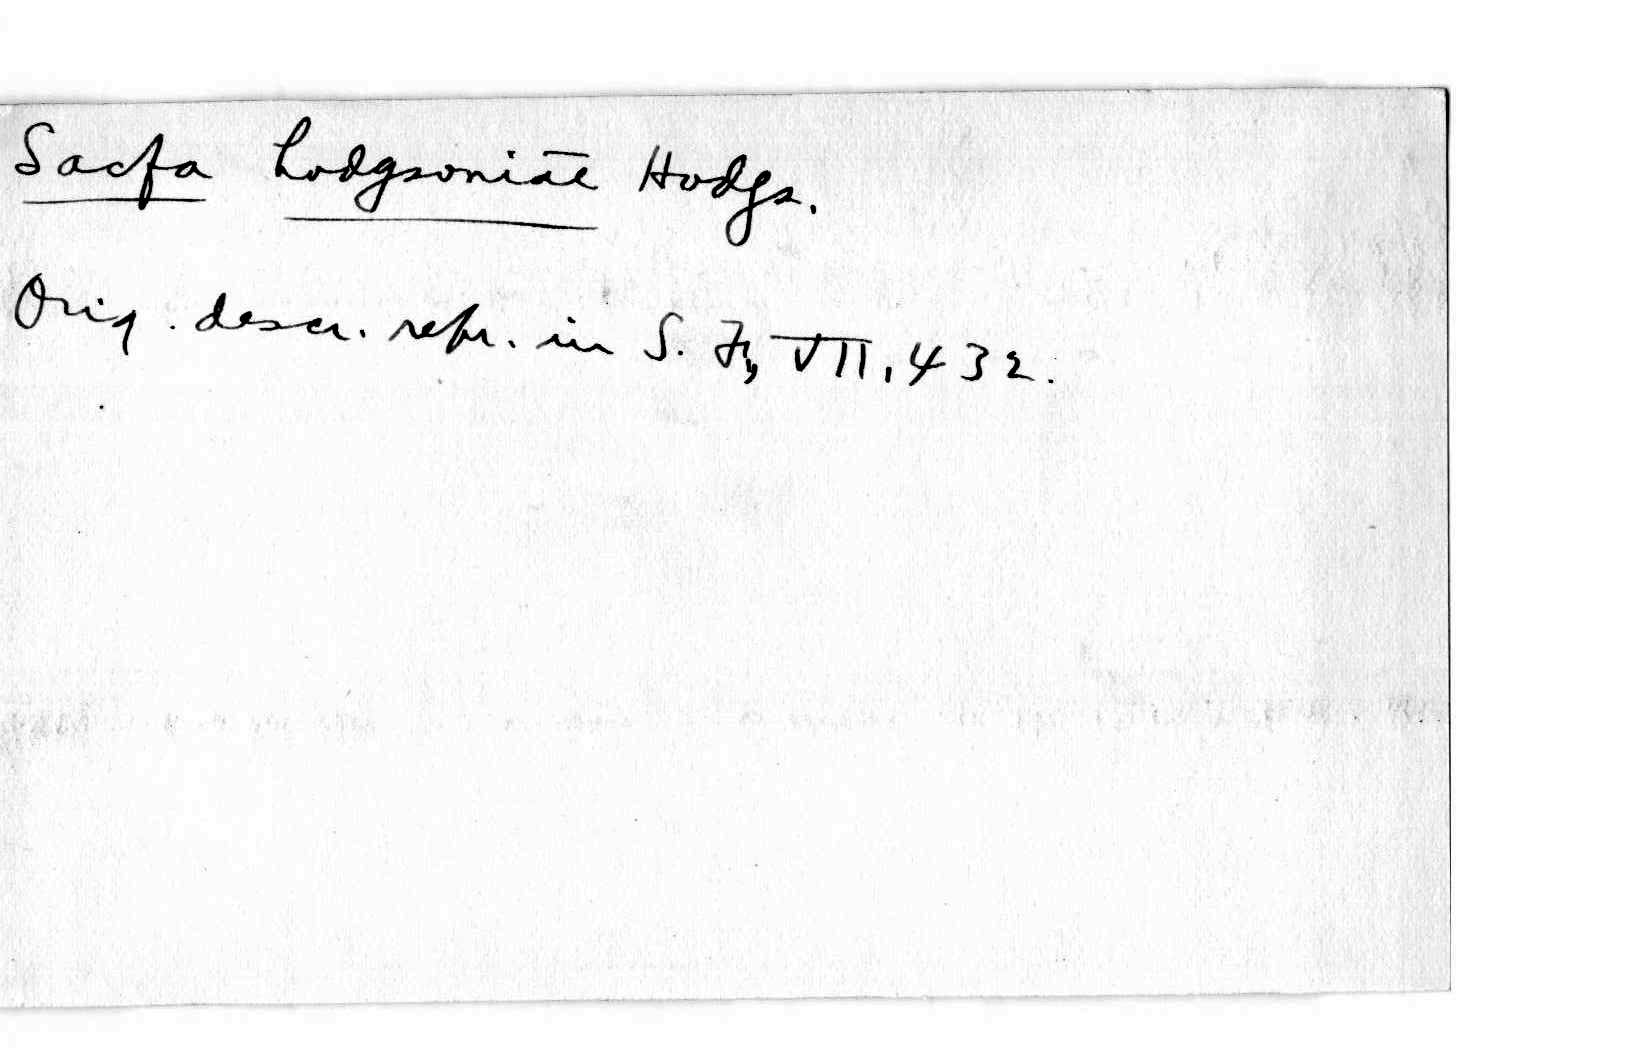 Sacfa hodgsoniae Hodgs.
Orig. descr. repr. in S. F., VII, 432.